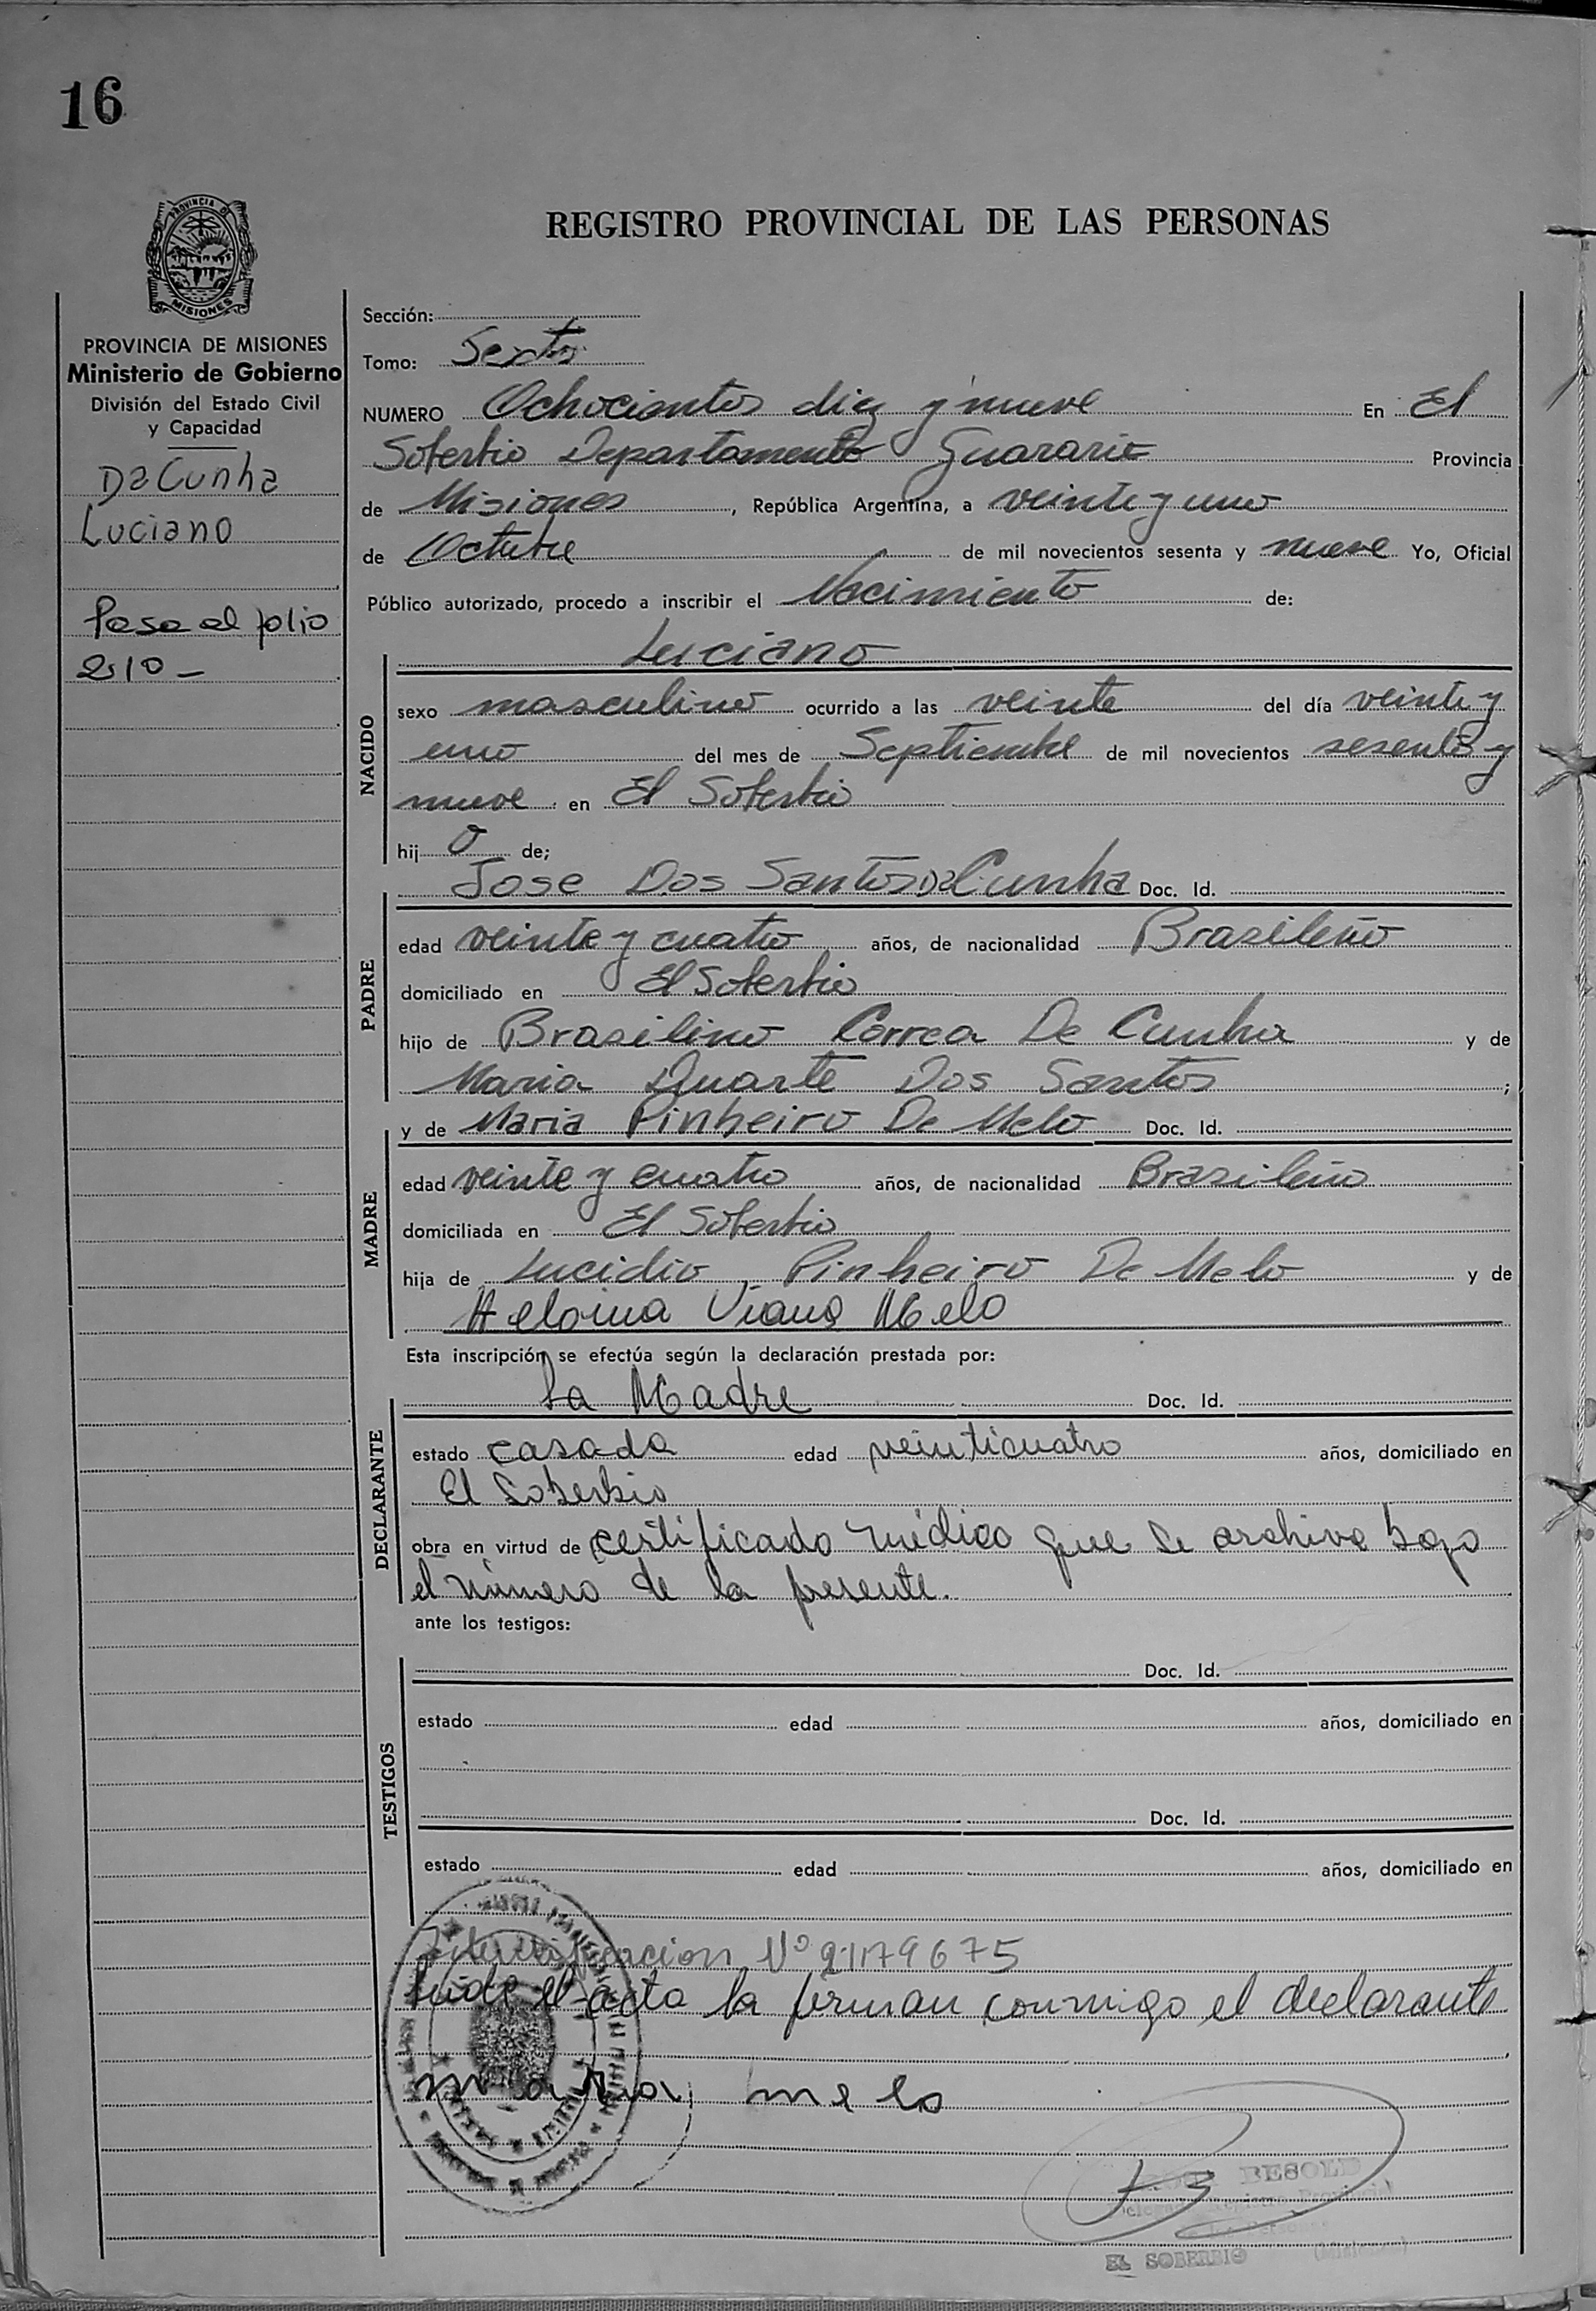 16
PROVINCIA DE
MISIONES
REGISTRO PROVINCIAL DE LAS PERSONAS
PROVINCIA DE MISIONES
Ministerio de Gobierno
División del Estado Civil
y Capacidad
Da Cunha
Luciano
Pasa al folio
210 -
Sección:
Tomo: Sexto
NUMERO Ochocientos diez y nueve En El
Soberbio Departamento Guararie Provincia
de Misiones, República Argentina, a veinte y uno
de Octubre de mil novecientos sesenta y nueve Yo, Oficial
Público autorizado, procedo a inscribir el Nacimiento de:
Luciano
NACIDO
sexo masculino ocurrido a las veinte del día veinte y
uno del mes de Septiembre de mil novecientos sesenta y
nueve en El Soberbio
hij o de;
Jose Dos Santos Da Cunha Doc. Id.
PADRE
edad veinte y cuatro años, de nacionalidad Brasileño
domiciliado en El Soberbio
hijo de Brasilino Correa De Cunha y de
Maria Duarte Dos Santos ;
y de Maria Pinheiro De Melo Doc. Id.
MADRE
edad veinte y cuatro años, de nacionalidad Brasileño
domiciliada en El Soberbio
hija de Lucidio Pinheiro De Melo y de
Heloina Viana Melo
Esta inscripción se efectúa según la declaración prestada por:
La Madre Doc. Id.
DECLARANTE
estado casada edad veinticuatro años, domiciliado en
El Soberbio
obra en virtud de certificado médico que se archiva bajo
el número de la presente.
ante los testigos:
Doc. Id.
TESTIGOS
estado edad años, domiciliado en
Doc. Id.
estado edad años, domiciliado en
Identificacion Nº 21179675
Leída el acta la firman conmigo el declarante
maria melo
BESOLD
Registro Provincial
EL SOBERBIO (Misiones)